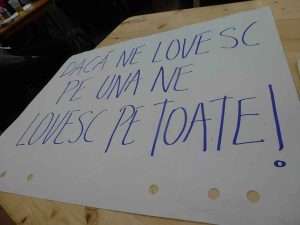 DACĂ NE LOVESC
PE UNA NE
LOVESC PE TOATE!